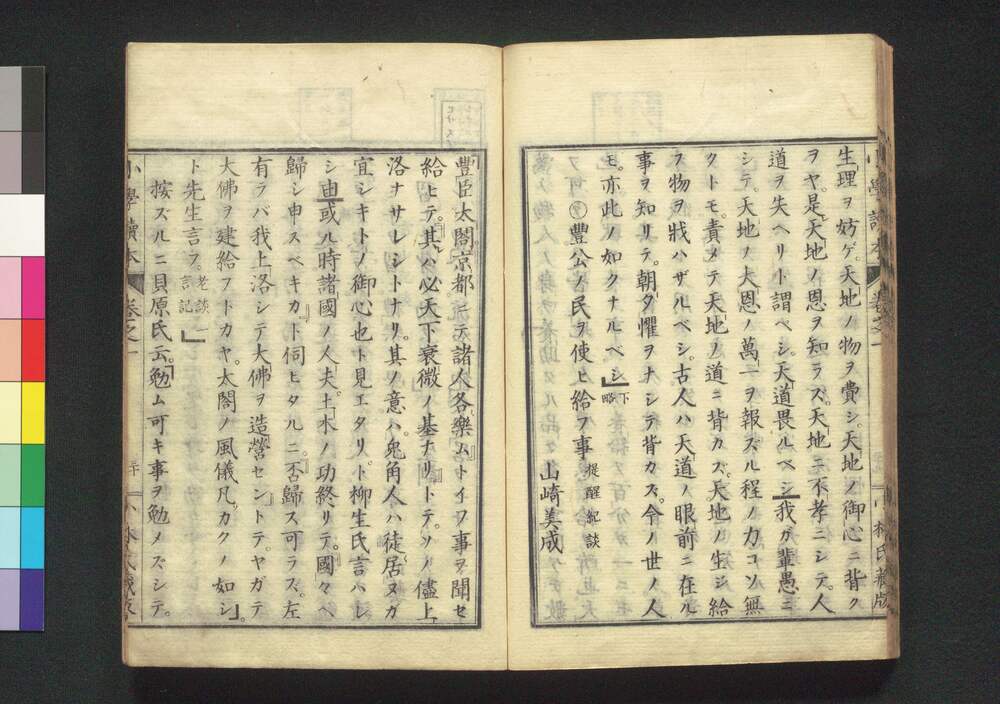 生理ヲ妨ゲ。天地ノ物ヲ費シ。天地ノ御心ニ背ク
ヲヤ。是天地ノ恩ヲ知ラズ。天地ニ不孝ニシテ。人
道ヲ失ヘリト謂ベシ。天道畏ルベシ。我ガ輩愚ニ
シテ。天地ノ大恩ノ萬一ヲ報ズル程ノ力コソ無
クトモ。責メテ天地ノ道ニ背カズ。天地ノ生ジ給
フ物ヲ戕ハザルベシ。古人ハ天道ノ眼前ニ在ル
事ヲ知リテ。朝夕懼ヲナシテ背カズ。今ノ世ノ人
モ。亦此ノ如クナルベシ。』下略
豐公ノ民ヲ使ヒ給フ事 提醒紀談 山崎美成
小學讀本 卷之一
小林氏藏版
豐臣太閤京都
諸人各樂ムトイフ事ヲ聞セ
給ヒテ。其ハ必天下衰微ノ基ナリトテ。ソノ儘上
洛ナサレシトナリ。其ノ意ハ。兎角人ハ徒居ヌガ
宜シキトノ御心也ト見エタリ。ト柳生氏言ハレ
シ由或ル時諸國ノ人夫。土木ノ功終リテ。國々ヘ
歸シ申スベキカト伺ヒタルニ。否歸ス可ラズ。左
有ラバ我上洛シテ大佛ヲ造營セントテ。ヤガテ
大佛ヲ建給フトカヤ。太閤ノ風儀凡カクノ如シ』。
ト先生言フ。老談一言記』
按ズルニ貝原氏云。勉ム可キ事ヲ勉メズシテ。
小學讀本 卷之一